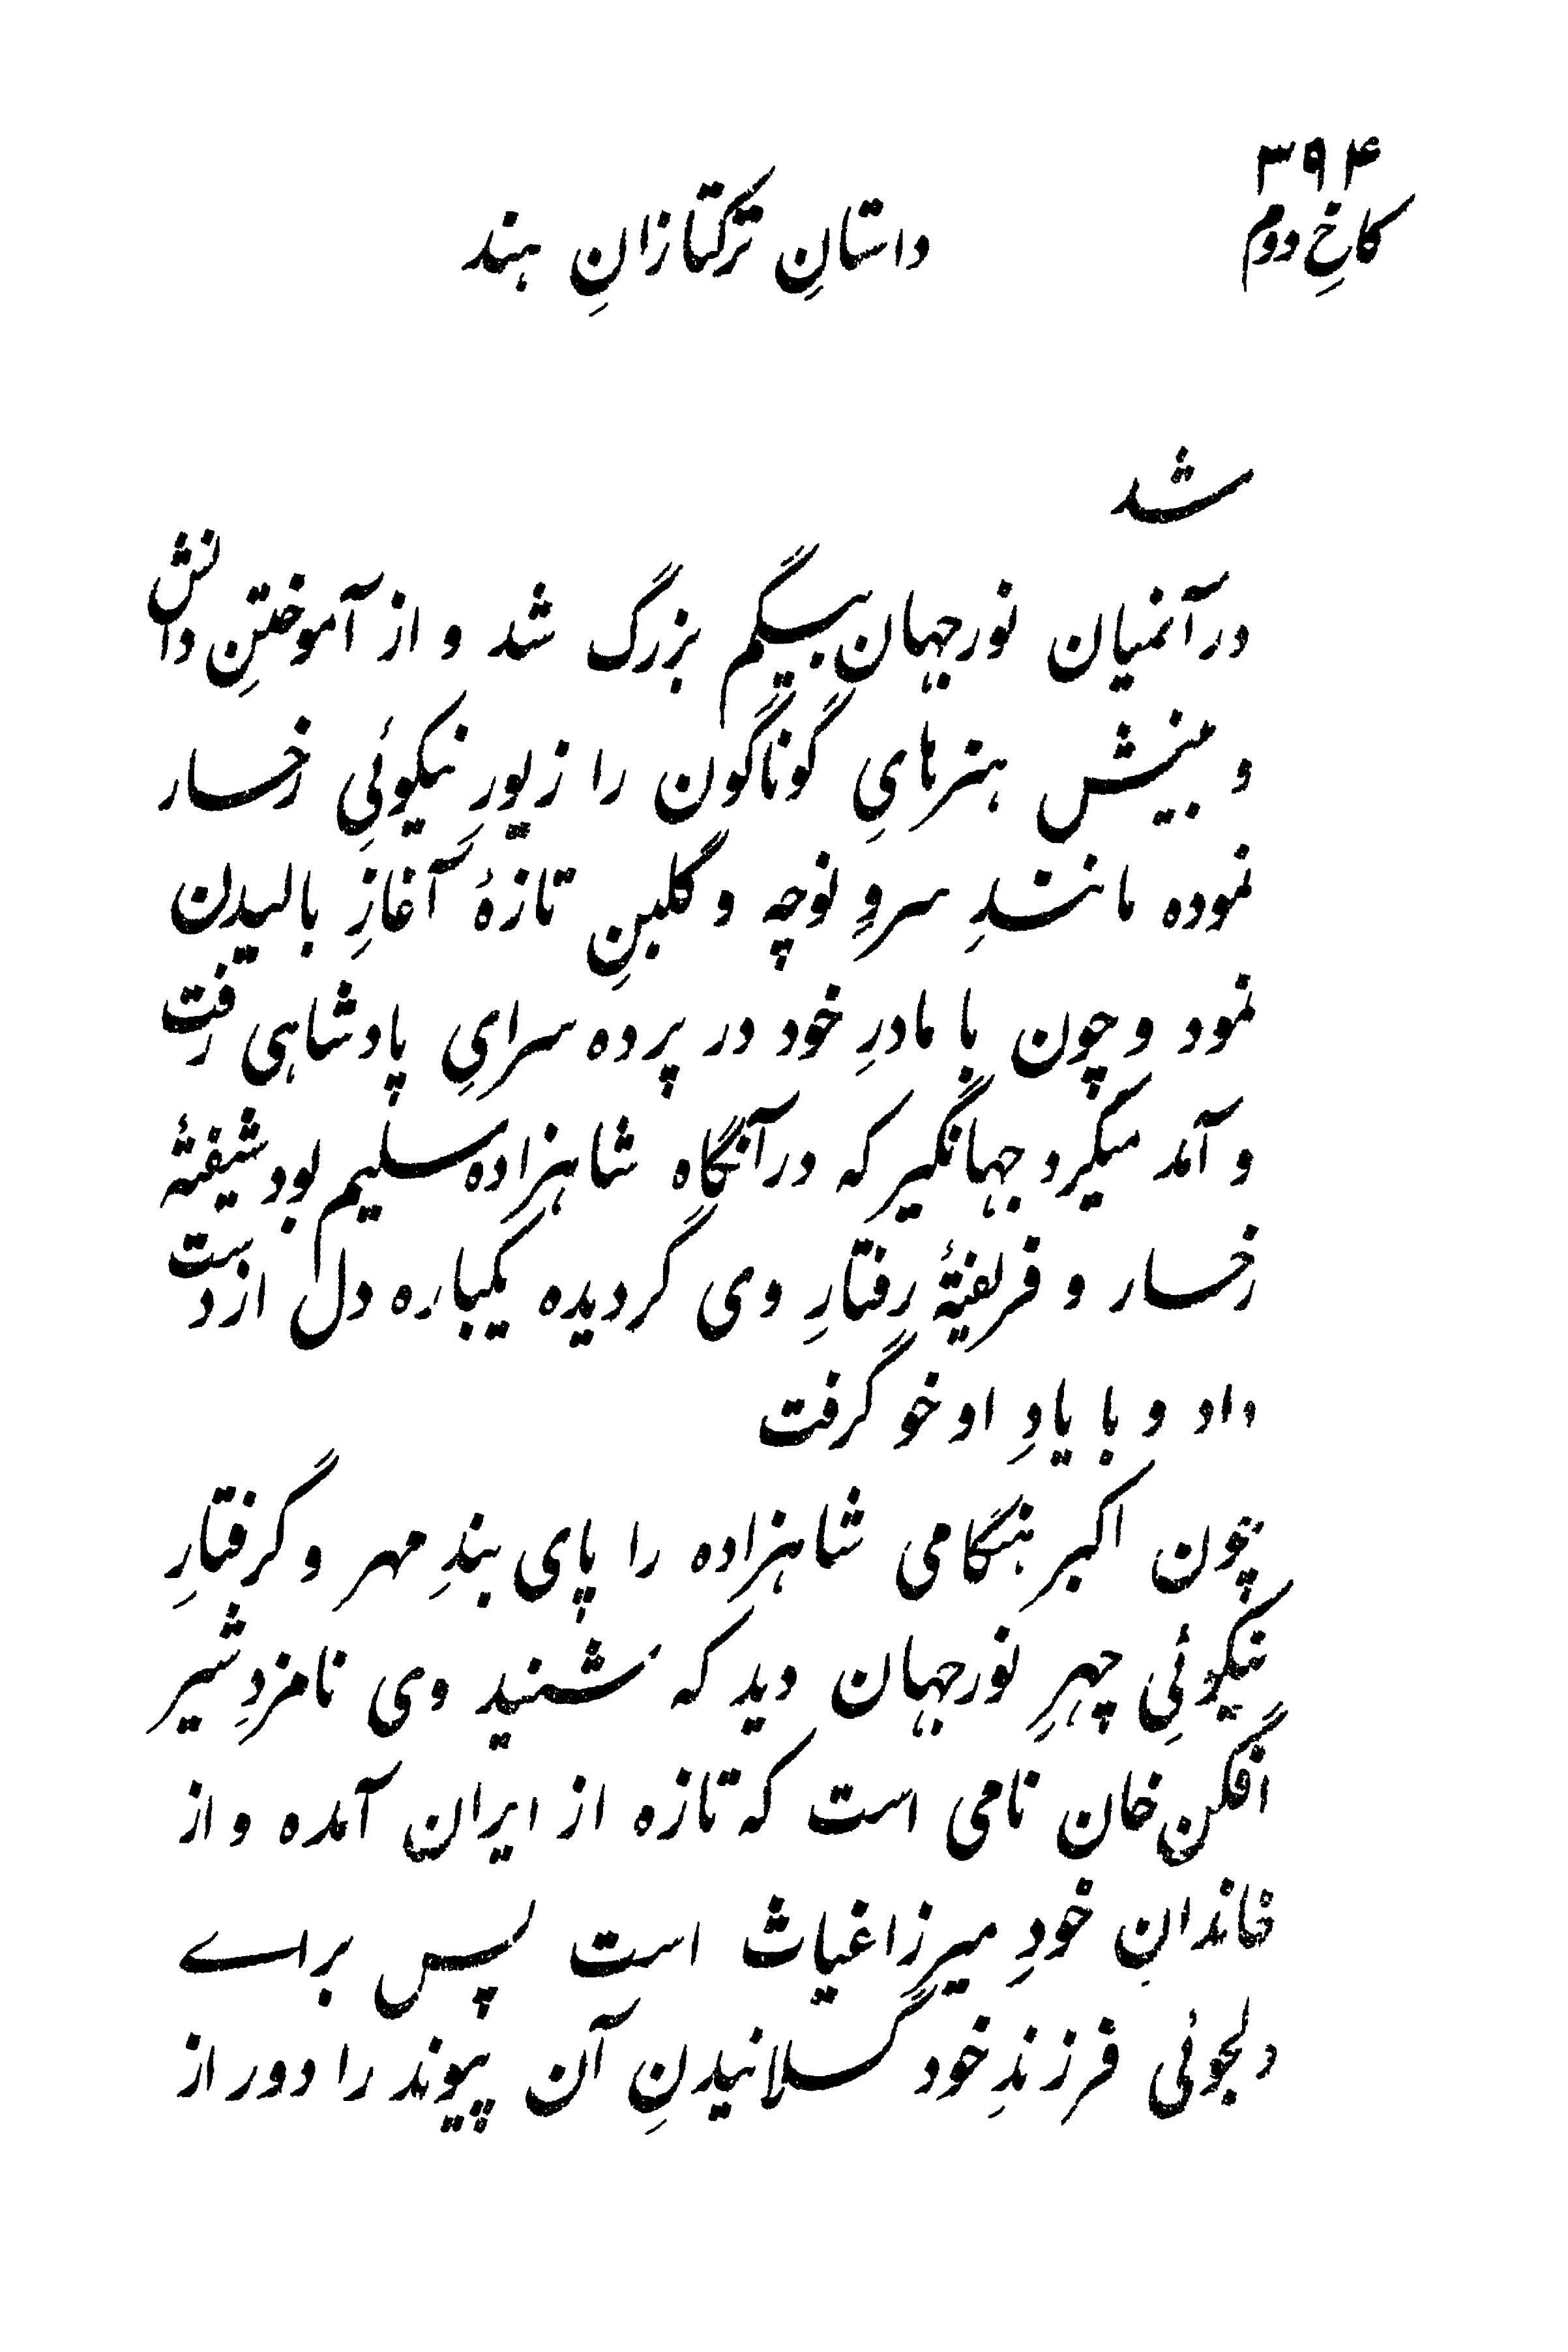 ۳۹۴
کاخِ دوم
داستانِ ترکتازانِ هند
شد
درآنمیان نورجهان بیگم بزرگ شد و از آموختنِ دانش
و بینش هنرهایِ گوناگون را زیورِ نیکوئیِ رخسار
نموده مانندِ سروِ نوچه و گلبنِ تازۀ آغازِ بالیدن
نمود و چون با مادرِ خود در پرده سرایِ پادشاهی رفت
و آمد میکرد جهانگیر که درآنگاه شاهزاده سلیم بود شیفتۀ
رخسار و فریفتۀ رفتارِ وی گردیده یکباره دل از دست
داد و با یادِ او خو گرفت
چون اکبر هنگامی شاهزاده را پای بندِ مهر و گرفتارِ
نیکوئیِ چهرِ نورجهان دید که شنید وی نامزدِ شیر
افگن خان نامی است که تازه از ایران آمده و از
خاندانِ خودِ میرزا غیاث است پس براے
دلجوئی فرزندِ خود گسلانیدنِ آن پیوند را دور از